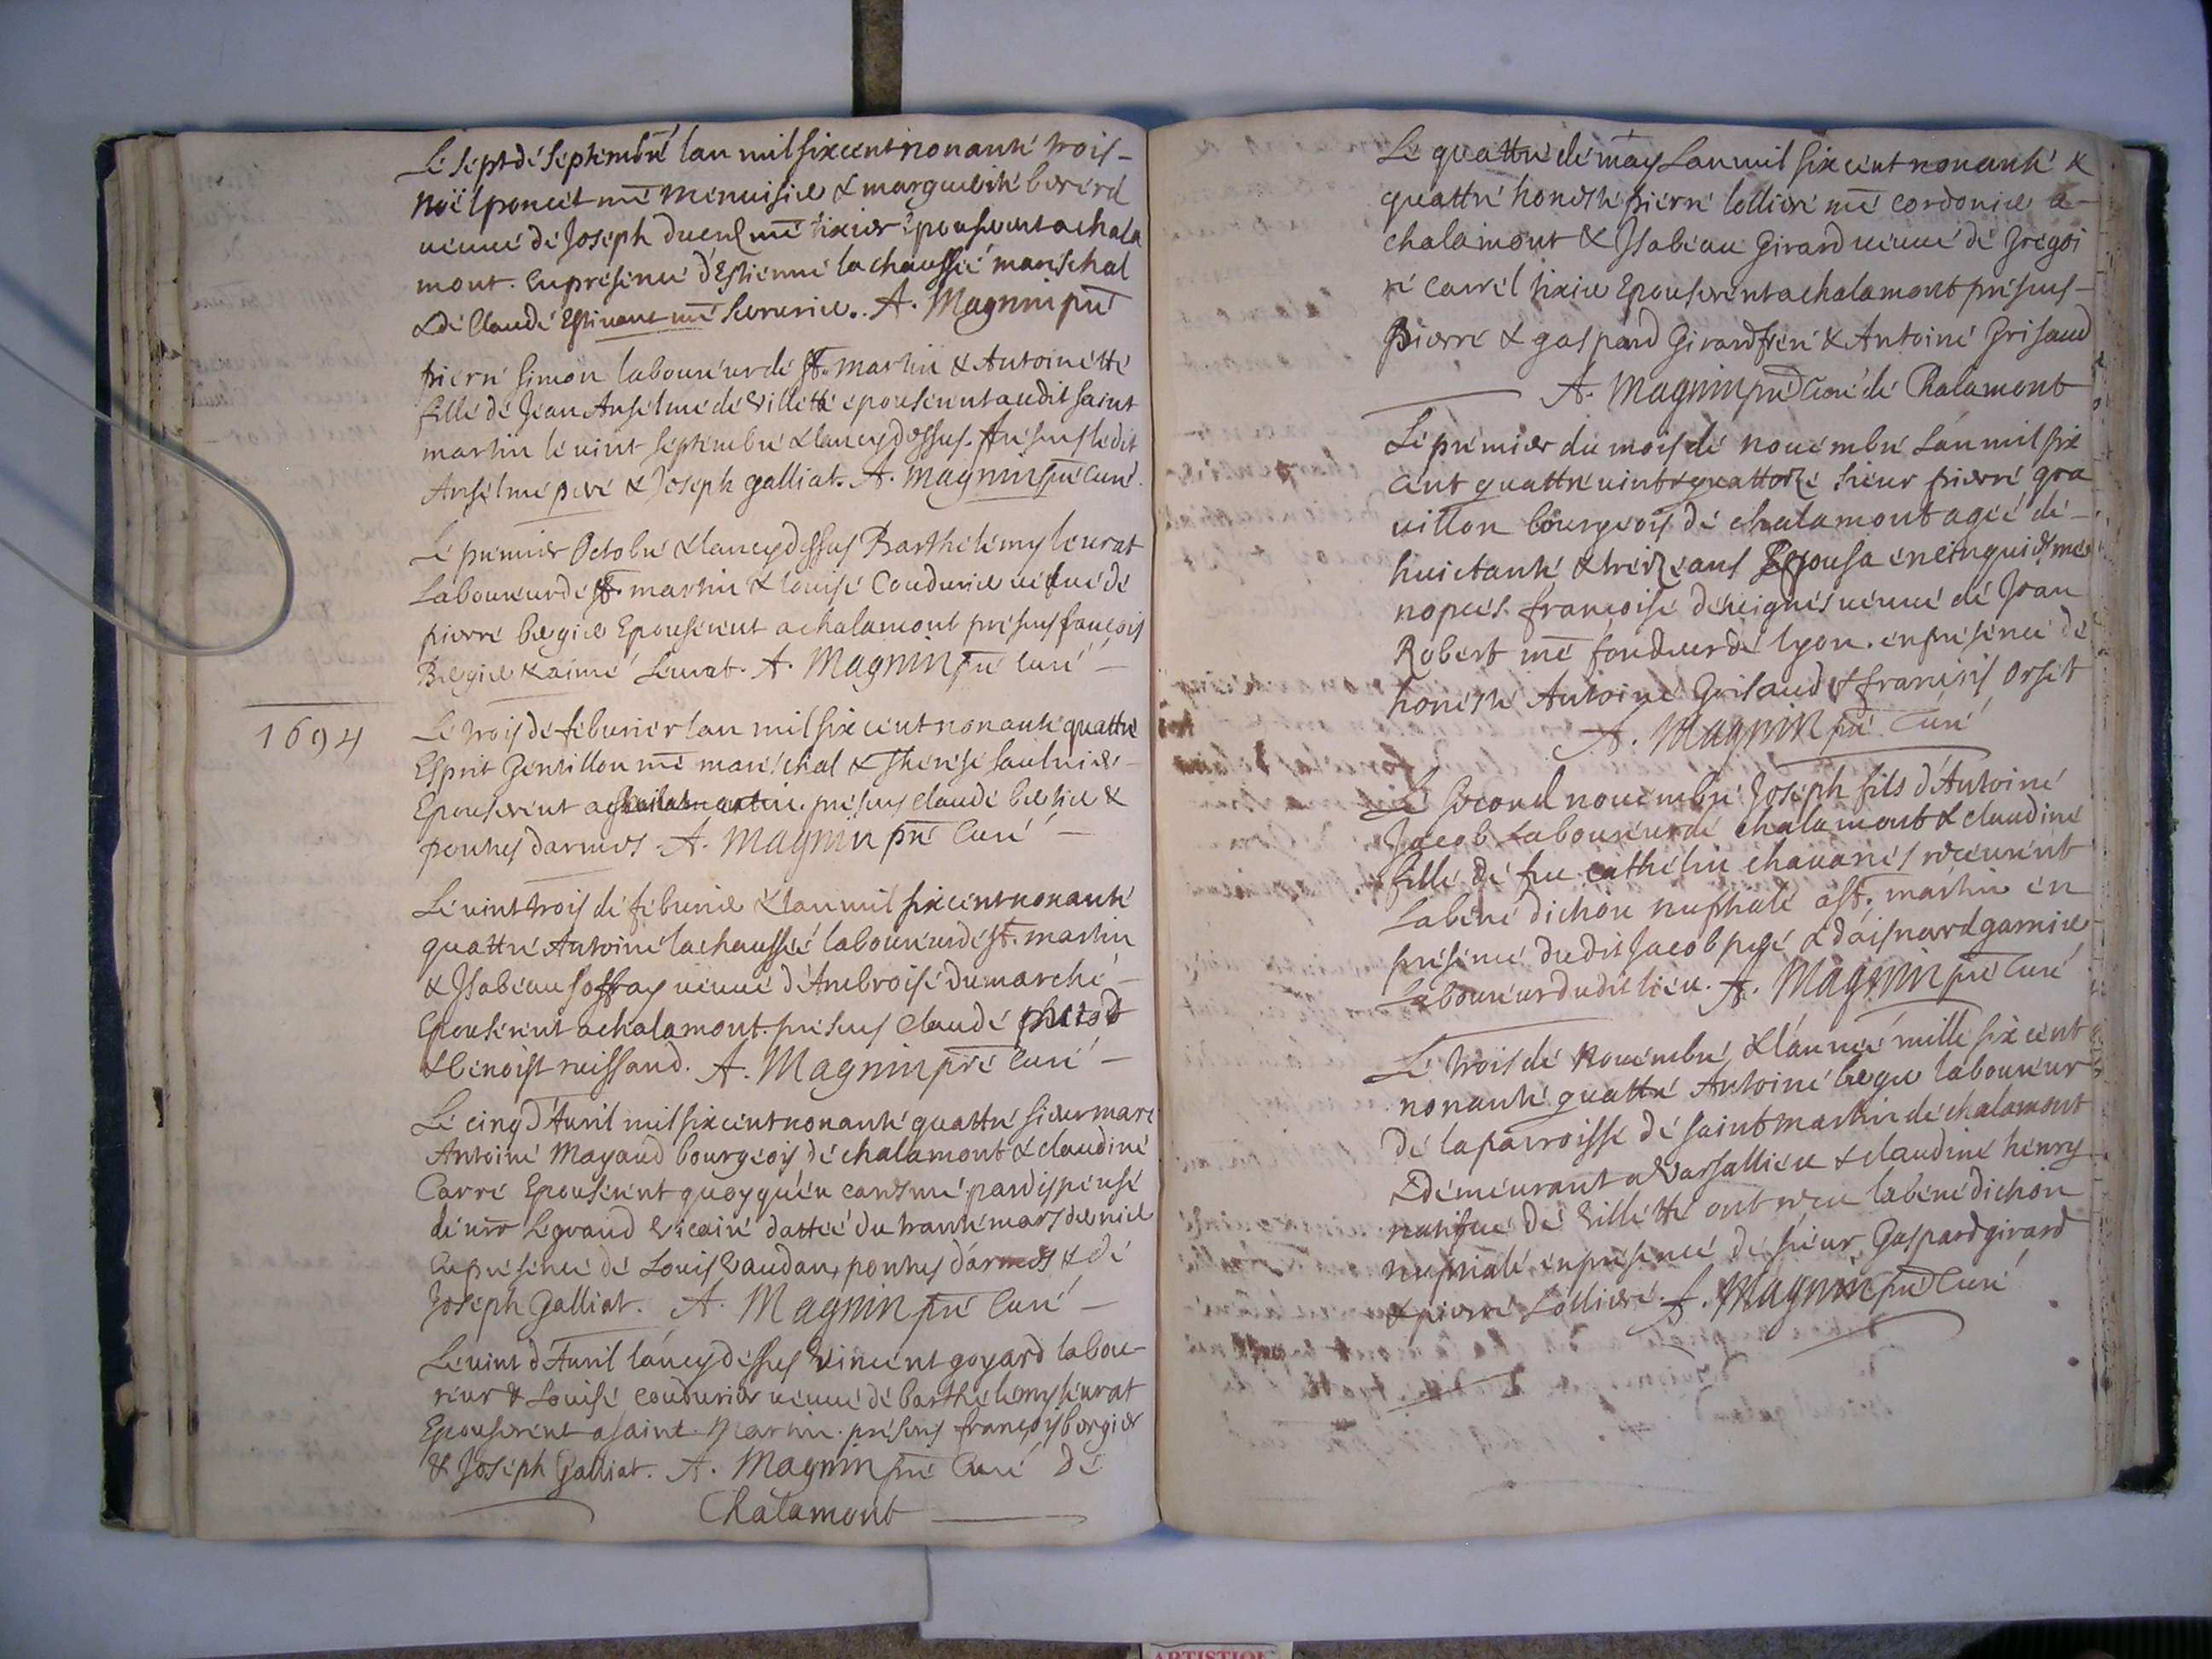 Le sept de septembre lan mil six cent nonante trois -
Noël poncet me menuisier & marguerite bererd
veuve de Joseph duerl me tixier Epouserent a chala
mont. en presence d'Estienne la chaussée mareschal
& de Claude Estivant me serrurier. A. Magnin pre
pierre simon laboureur de st. martin & Antoinette
fille de Jean Anselme de villette epouserent audit saint
martin le vint septembre & lan cy dessus. presens ledit
Anselme pere & Joseph galliat. A. Magnin pre curé.
Le premier Octobre & lan cy dessus Barthelemy leurat
Laboureur de st. martin & louise Coudurier vefve de
pierre bergier Epouserent a chalamont presens françois
Bergier & aimé Leurat. A. Magnin pre Curé -
1694
Le trois de feburier lan mil six cent nonante quattre
Esprit Gentillon me mareschal & Therese saulnier -
Epouserent a martin. presens claude bertier &
ponthus darmes A. Magnin pre Curé -
Le vint trois de feburier & lan mil six cent nonante
quattre Antoine la chaussée laboureur de st. martin
& Isabeau soffray veuve d'Ambroise dumarché -
Epouserent a chalamont. presens Claude
& benoist ruissand. A. Magnin pre Curé -
Le cinq d'Avril mil six cent nonante quattre sieur marc
Antoine Magaud bourgeois de chalamont & claudine
Carré Epouserent quoyqu'en caresme par dispense
de mr Legrand vicaire dattée du trante mars dernier
en presence de Louis vaudan, ponthus darmes & de
Joseph Galliat. A. Magnin pre Curé -
Le vint d'Avril lan cy dessus vincent goyard labou-
reur & Louise coudurier veuve de barthelemy leurat
Epouserent a saint Martin. presens françois bergier
& Joseph Galliat. A. Magnin pre Curé de
Chalamont
Le quattre de may Lan mil six cent nonante &
quattre honeste pierre lollière me cordonier a -
chalamont & Isabeau Girard veuve de Gregoi
re Carrel tixier Epouserent a chalamont presens -
Pierre & gaspard Girard frere & Antoine Grisaud
A. Magnin pre Curé de Chalamont
Le premier du mois de novembre Lan mil six
cent quattre vint & quattorze sieur pierre gra
villon bourgeois de chalamont agée de -
huictante & treize ans Epousa en cinquiesme
nopces. françoise deneignes veuve de Jean
Robert me fondeur de lyon. en presence de
honeste Antoine Grisaud & françois Orset
A. Magnin pre Curé
Le second novembre Joseph fils d'Antoine
Jacob Laboureur de chalamont & claudine
fille de feu cathelin chavanes receurent
la benediction nuptiale a st. martin en
presence dudit Jacob pere & d'aisnard garnier
Laboureur dudit lieu. A. Magnin pre Curé
Le trois de Novembre & l'année mille six cent
nonante quattre Antoine bergu laboureur
de la parroisse de saint martin de chalamont
& demeurant a Varsallieu & claudine henry
natifve de villette ont receu la benediction
nuptiale en presence de sieur Gaspard girard
& pierre Lollière. A. Magnin pre Curé